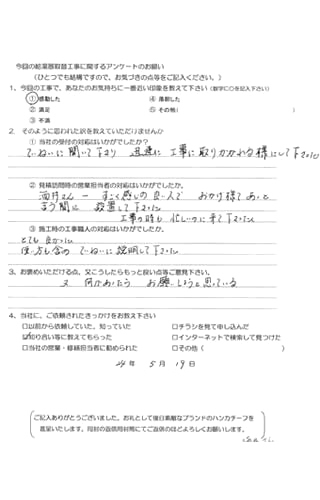 今回の給湯器取替工事に関するアンケートのお願い
（ひとつでも結構ですので、お気づきの点等をご記入ください。）
1、今回の工事で、あなたのお気持ちに一番近い印象を教えて下さい（数字に○を記入下さい）
①感動した ④落胆した
②満足 ⑤その他（ ）
③不満
2．そのように思われた訳を教えていただけませんか
① 当社の受付の対応はいかがでしたか？
ていねいに聞いて下さり 迅速に工事に取りかかれる様にして下さった
② 見積訪問時の営業担当者の対応はいかがでしたか。
酒井さん － すごく感じの良い人で おかげ様であっと
まう間に 設置して下さった
工事の時も 忙しいのに来て下さった
③ 施工時の工事職人の対応はいかがでしたか。
とても良かった
使い方も含め ていねいに説明して下さった
3、お褒めいただける点、又こうしたらもっと良い点等ご意見下さい。
又 何かあったら お願いしようと思っている
4、当社に、ご依頼されたきっかけをお教え下さい
□以前から依頼していた、知っていた □チラシを見て申し込んだ
☑知り合い等に教えてもらった □インターネットで検索して見つけた
□当社の営業・修繕担当者に勧められた □その他（ ）
24年 5月 19日
ご記入ありがとうございました。お礼として後日素敵なブランドのハンカチーフを
進呈いたします。同封の返信用封筒にてご返信のほどよろしくお願いします。